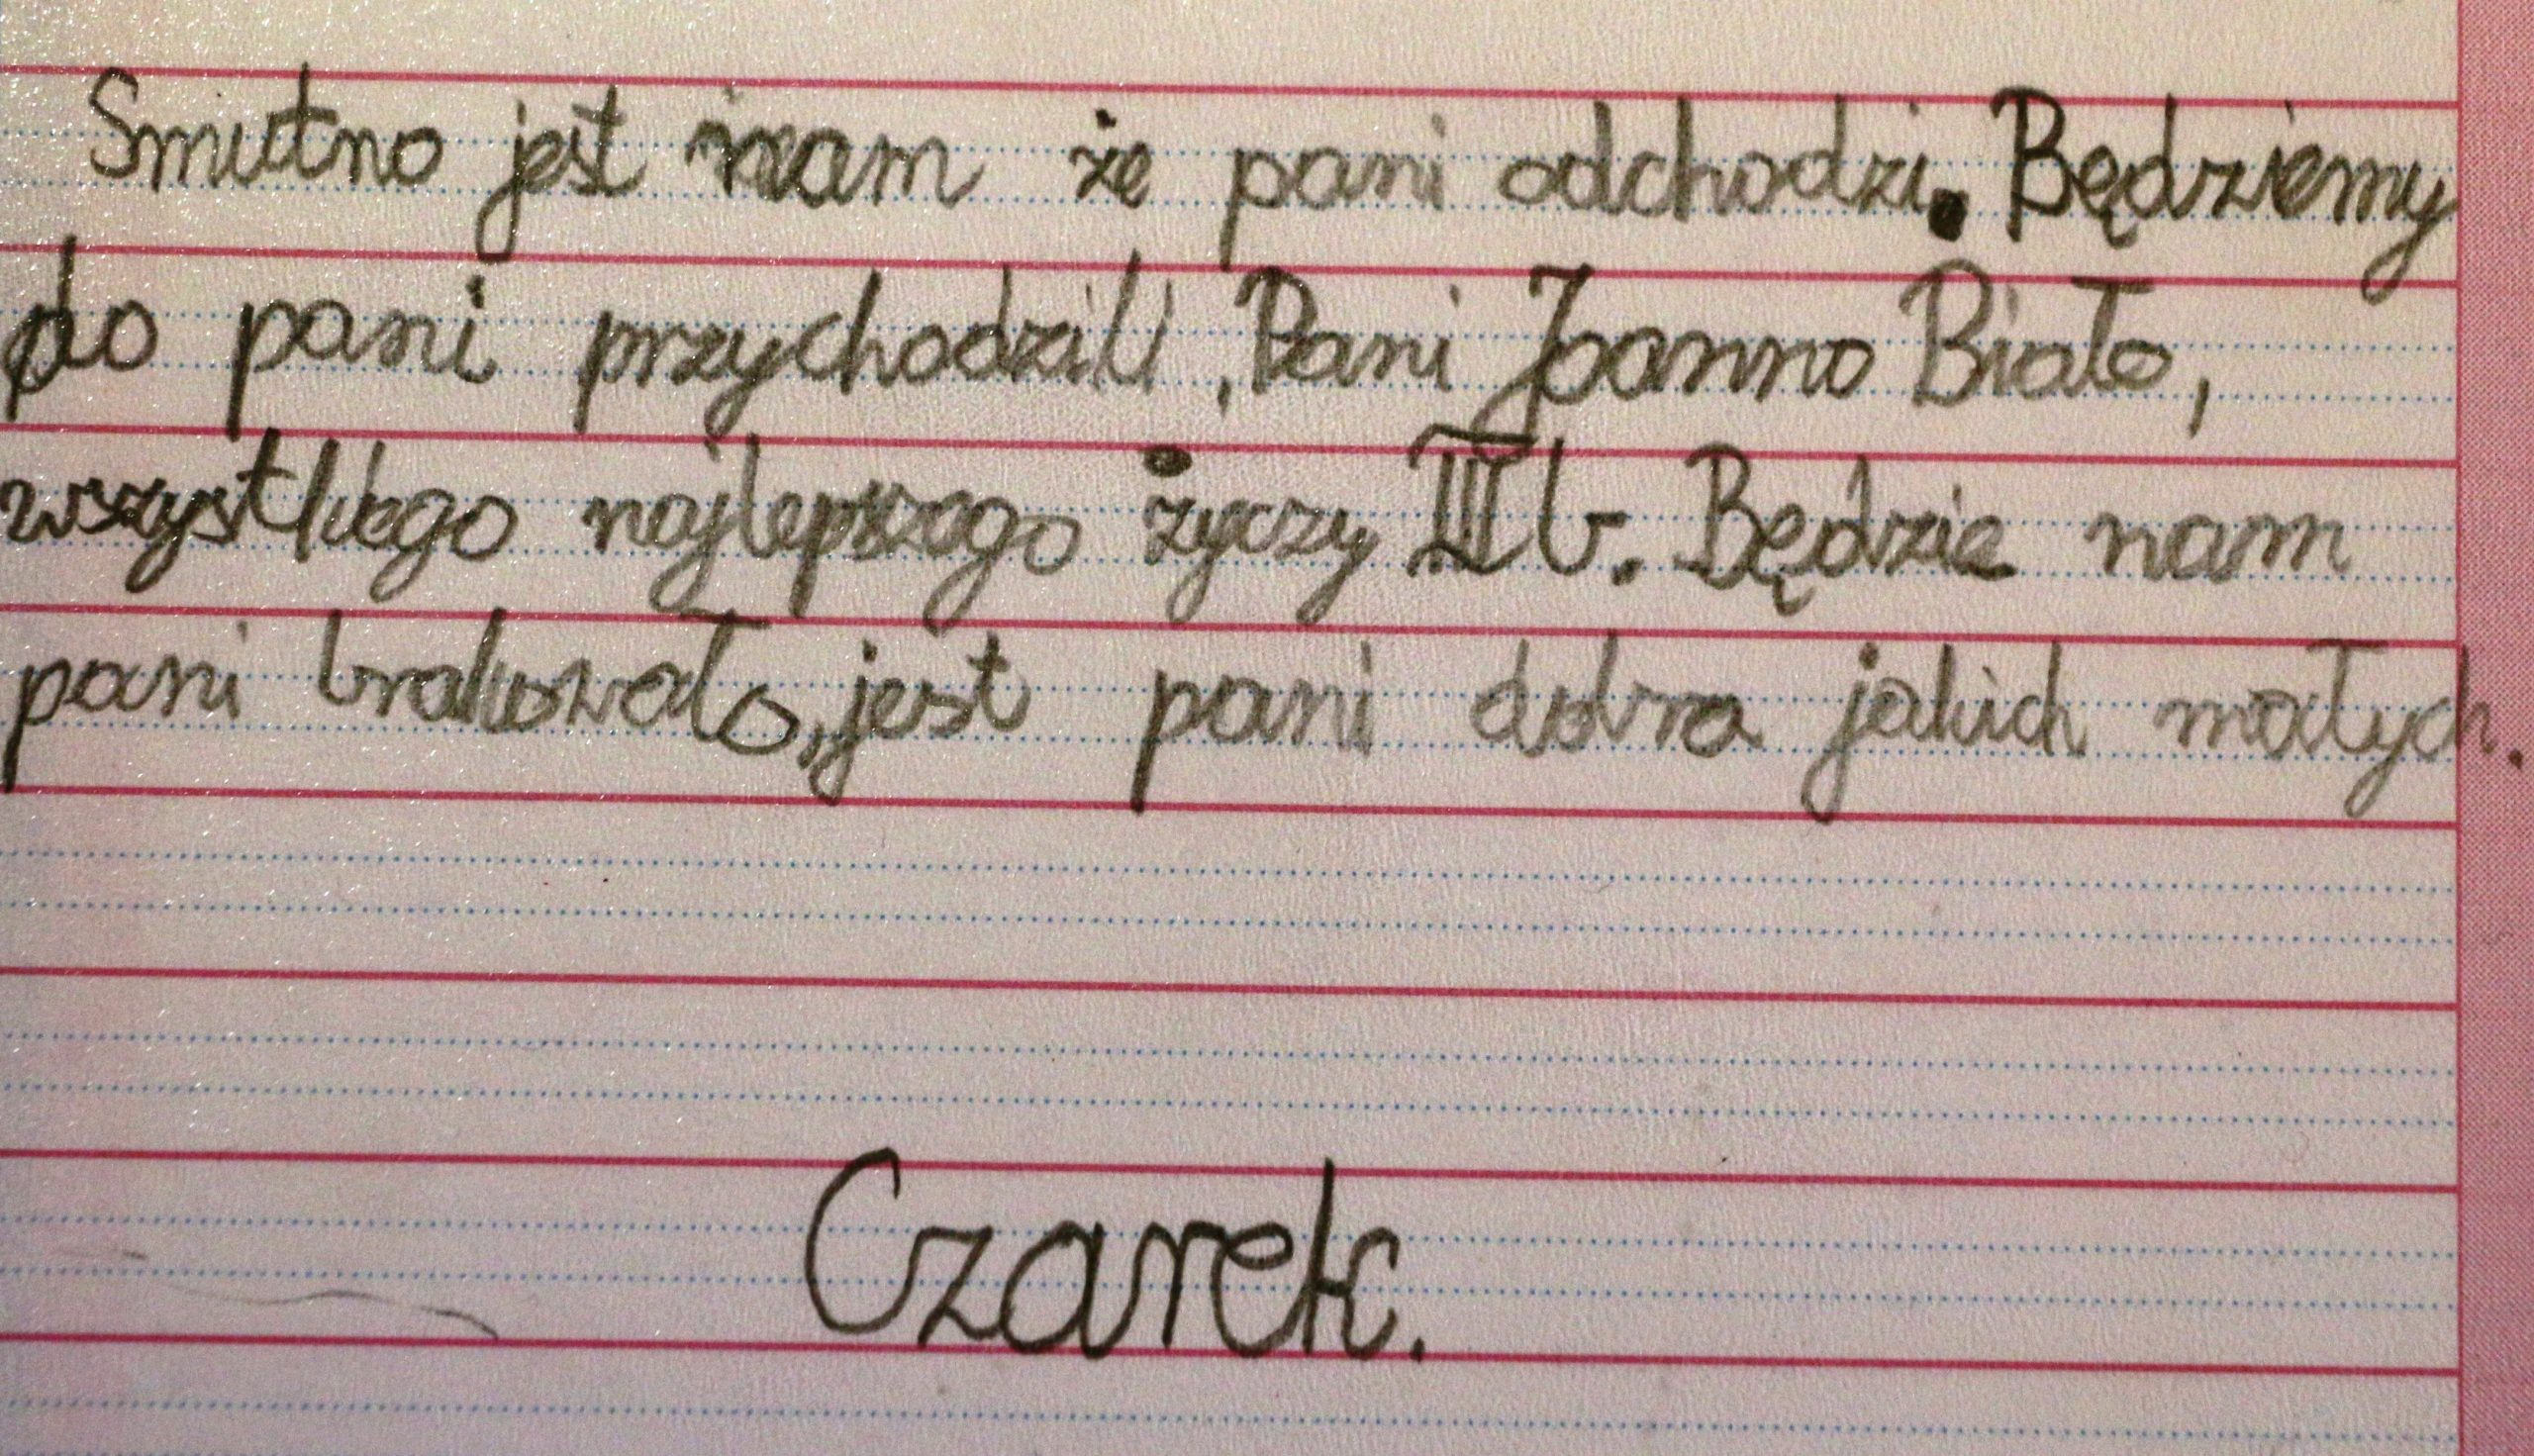 Smutno jest nam że pani odchodzi. Będziemy
do pani przychodzili, Pani Joanno Biało,
wszystkiego najlepszego życzy III b. Będzie nam
pani brakowało, jest pani dobra jakich małych.
Czarek.